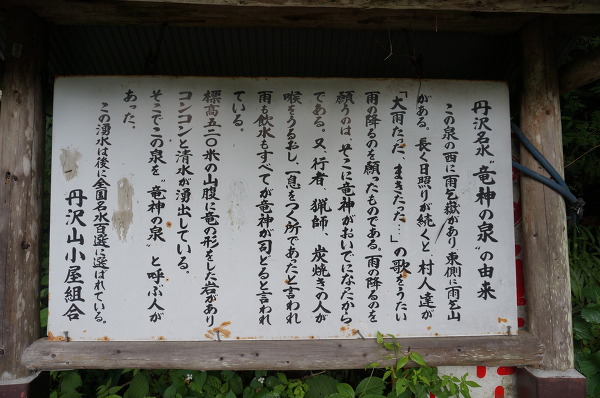 丹沢名水“竜神の泉”の由来
この泉の西に雨乞嶽があり、東側に雨乞山
がある。長く日照りが続くと村人達が
「大雨たった、まきたった…」の歌をうたい
雨の降るのを願ったものである。雨の降るのを
願うのは、そこに竜神がおいでになったから
である。又、行者、猟師、炭焼きの人が
喉をうるおし、一息をつく所であったと言われ
雨も飲水もすべてが竜神が司どると言われ
ている。
標高五二〇米の山腹に竜の形をした岩があり
コンコンと清水が湧出している。
そこでこの泉を“竜神の泉”と呼ぶ人が
あった。
この湧水は後に全国名水百選に選ばれている。
丹沢山小屋組合